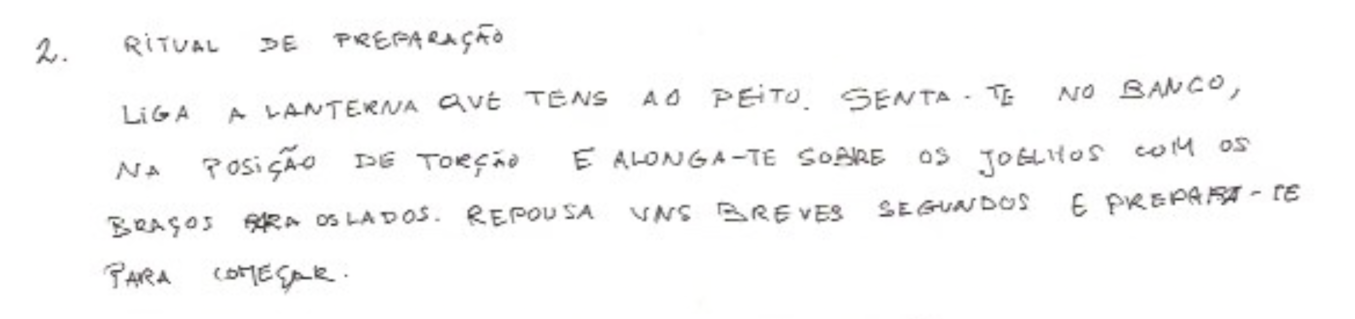 2. RITUAL DE PREPARAÇÃO
LIGA A LANTERNA QUE TENS AO PEITO. SENTA-TE NO BANCO,
NA POSIÇÃO DE TORÇÃO E ALONGA-TE SOBRE OS JOELHOS COM OS
BRAÇOS PARA OS LADOS. REPOUSA UNS BREVES SEGUNDOS E PREPARA-TE
PARA COMEÇAR.